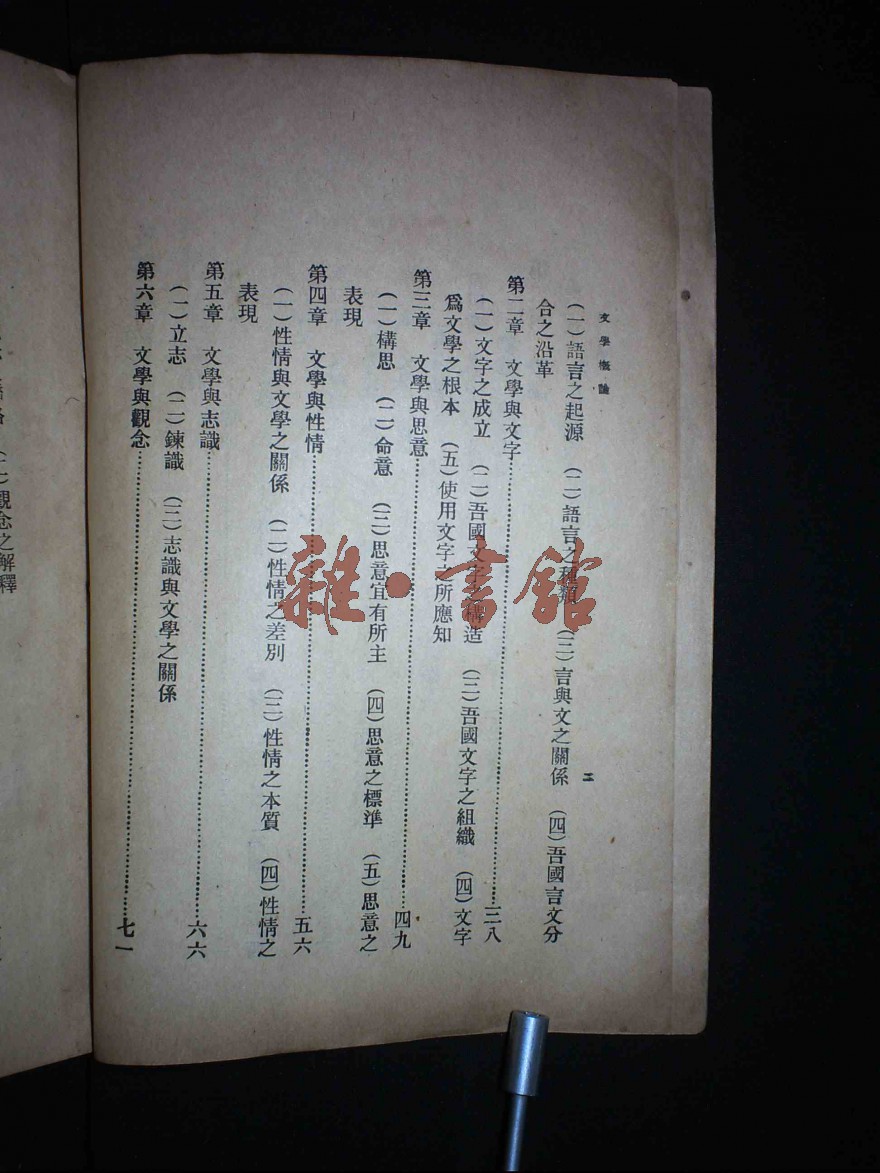 文學概論
二
(一)語言之起源 (二)語言之種類 (三)言與文之關係 (四)吾國言文分
合之沿革
第二章 文學與文字……三八
(一)文字之成立 (二)吾國文字之構造 (三)吾國文字之組織 (四)文字
爲文學之根本 (五)使用文字之所應知
第三章 文學與思意……四九
(一)構思 (二)命意 (三)思意宜有所主 (四)思意之標準 (五)思意之
表現
第四章 文學與性情……五六
(一)性情與文學之關係 (二)性情之差別 (三)性情之本質 (四)性情之
表現
第五章 文學與志識……六六
(一)立志 (二)鍊識 (三)志識與文學之關係
第六章 文學與觀念……七一
(二)觀念之解釋
雜·書館